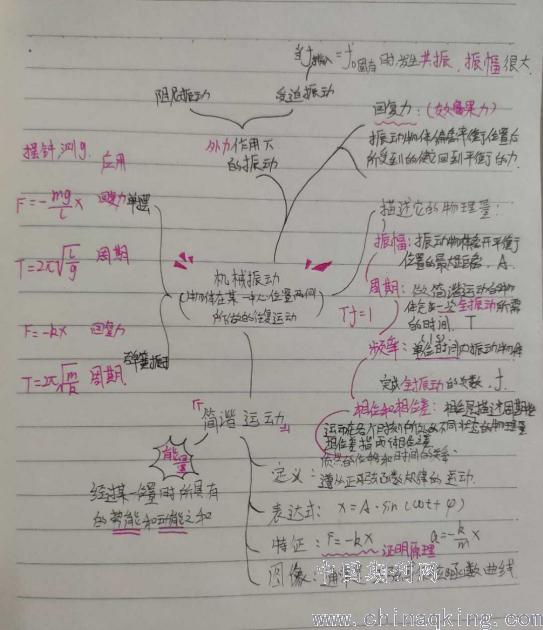 当f驱动=f固有时发生共振、振幅很大
阻尼振动
受迫振动
外力作用下
的振动
回复力：(效果力)
振动物体偏离平衡位置后
所受到的使它回到平衡的力.
描述它的物理量：
振幅：振动物体离开平衡
位置的最大距离. A.
周期：做简谐运动的物
体完成一次全振动所需
的时间. T
Tf=1
频率：单位时间内振动物体
完成全振动的次数. f.
相位和相位差：
机械振动
(物体在某一中心位置两侧
所做的往复运动
摆钟、测g.
应用
F=-mg/L x
回复力
单摆
T=2π√(L/g)
周期
F=-kx
回复力
弹簧振子
T=2π√(m/k)
周期
简谐运动
能量
经过某一位置时所具有
的势能和动能之和
定义：
遵从正弦函数规律的运动.
表达式：x=A·sin(ωt+φ)
特征：F=-kx
证明原理
a=-k/m x
图像：
函数曲线
中国期刊网
www.chinaqking.com